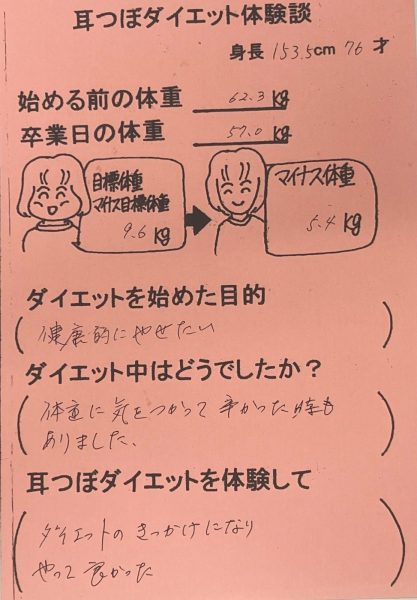 耳つぼダイエット体験談
身長 153.5cm 76才
始める前の体重 62.3 kg
卒業日の体重 57.0 kg
目標体重
マイナス目標体重
9.6 kg
マイナス体重
5.4 kg
ダイエットを始めた目的
健康的にやせたい
ダイエット中はどうでしたか？
体重に気をつかって辛かった時も
ありました、
耳つぼダイエットを体験して
ダイエットのきっかけになり
やって良かった